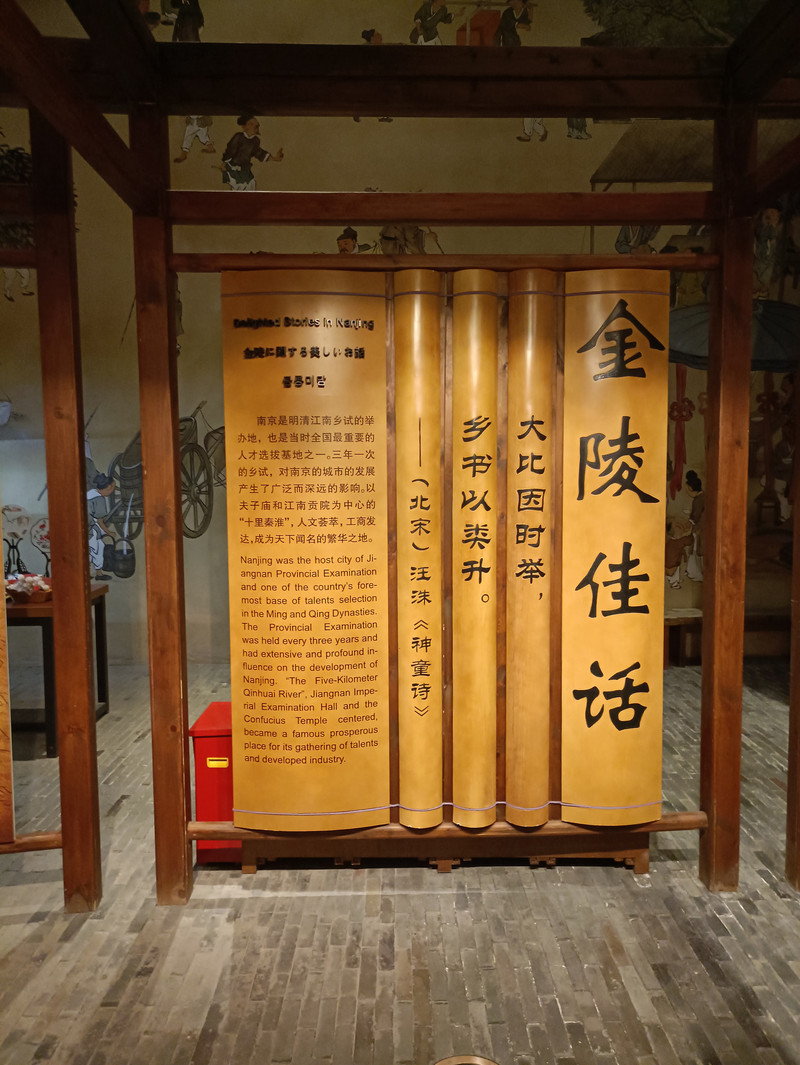 金陵佳话
大比因时举，
乡书以类升。
——（北宋）汪洙《神童诗》
Stories in Nanjing
金陵に関する美しいお話
금릉미담
南京是明清江南乡试的举
办地，也是当时全国最重要的
人才选拔基地之一。三年一次
的乡试，对南京的城市的发展
产生了广泛而深远的影响。以
夫子庙和江南贡院为中心的
“十里秦淮”，人文荟萃，工商发
达，成为天下闻名的繁华之地。
Nanjing was the host city of Ji-
angnan Provincial Examination
and one of the country's fore-
most base of talents selection
in the Ming and Qing Dynasties.
The Provincial Examination
was held every three years and
had extensive and profound in-
fluence on the development of
Nanjing. “The Five-Kilometer
Qinhuai River”, Jiangnan Impe-
rial Examination Hall and the
Confucius Temple centered,
became a famous prosperous
place for its gathering of talents
and developed industry.